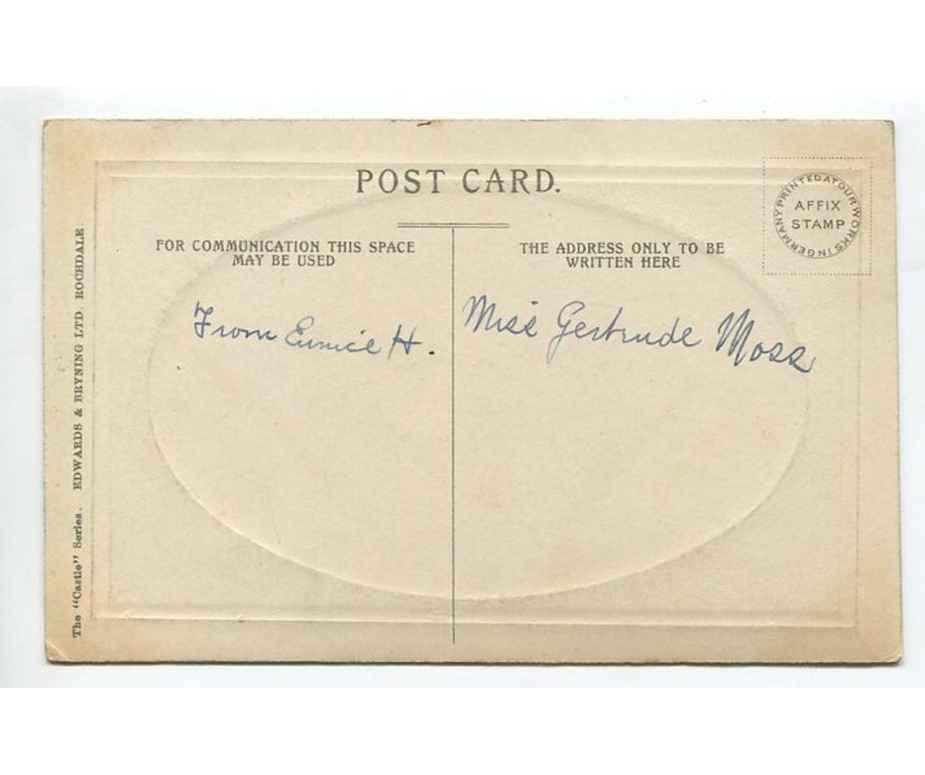 POST CARD.
FOR COMMUNICATION THIS SPACE
MAY BE USED
THE ADDRESS ONLY TO BE
WRITTEN HERE
PRINTED AT OUR WORKS IN GERMANY
AFFIX
STAMP
From Eunice H.
Miss Gertrude Moss
The "Castle" Series. EDWARDS & BRYNING LTD. ROCHDALE